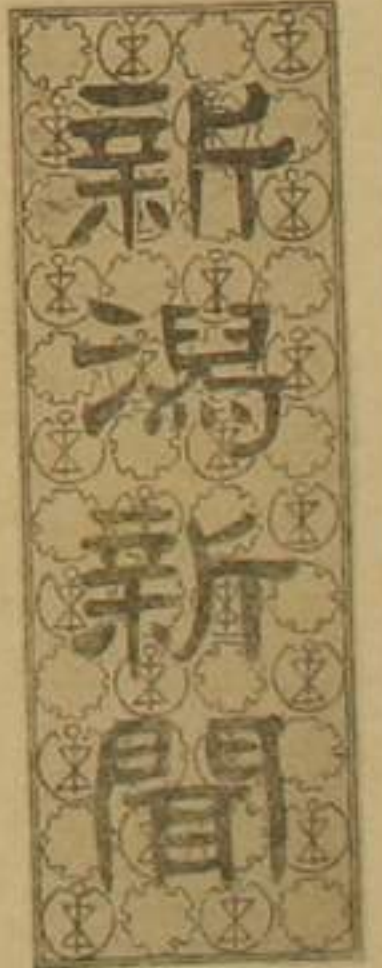 新潟新聞